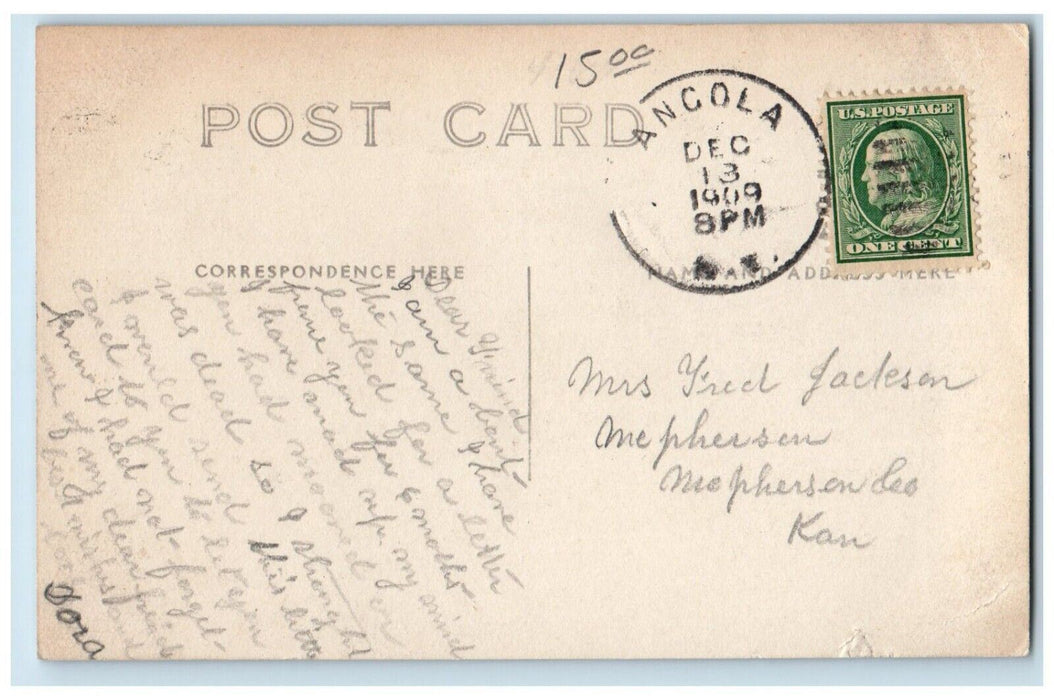 15 00
POST CARD
ANGOLA
DEC
13
1909
8PM
U.S. POSTAGE
ONE CENT
CORRESPONDENCE HERE
NAME AND ADDRESS HERE
Dear Friend
I am a bout
the same I have
looked for a letter
frome you for 6 months
I have mad up my mind
you had mooved or
was dead so I thought
I would send this little
card to you to let you
know I had not forget
me of my dear friends
best wishes and
love
Dora
Mrs Fred Jackson
Mcpherson
Mcpherson Co
Kan